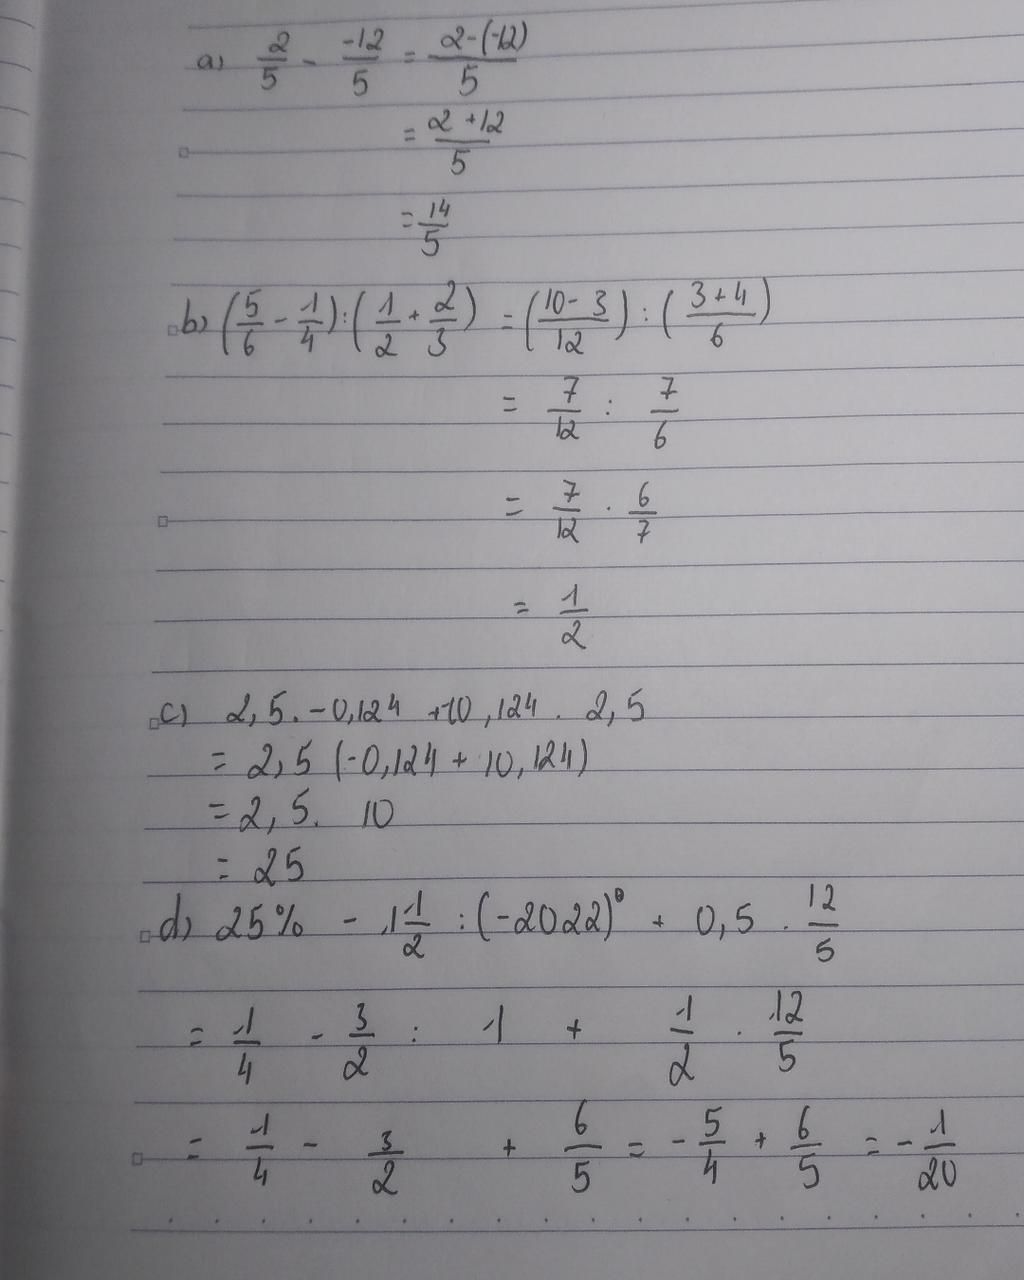 a) 2/5 - -12/5 = 2-(-12)/5
= 2+12/5
= 14/5
b) (5/6 - 1/4) : (1/2 + 2/3) = (10-3/12) : (3+4/6)
= 7/12 : 7/6
= 7/12 . 6/7
= 1/2
c) 2,5 . -0,124 +10,124 . 2,5
= 2,5 (-0,124 + 10,124)
= 2,5 . 10
= 25
d) 25% - 1 1/2 : (-2022)⁰ + 0,5 . 12/5
= 1/4 - 3/2 : 1 + 1/2 . 12/5
= 1/4 - 3/2 + 6/5 = -5/4 + 6/5 = -1/20